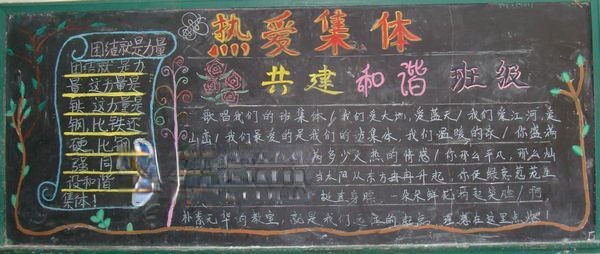 热爱集体
共建和谐班级
团结就是力量
团结就是力
量 这力量是
铁 这力量是
钢,比铁还
硬 比钢
强 同
设和谐
集体!
歌唱我们的班集体/我们爱大地,爱蓝天/我们爱江河,爱
山峦/我们最爱的是我们的班集体,我们温暖的家/你盛满
多少火热的情感/你那么平凡,那么灿
当太阳从东方冉冉升起,你使绿意
挺直身躯 一朵朵鲜花
朴素无华的教室,就是我们 理想在这里点燃!